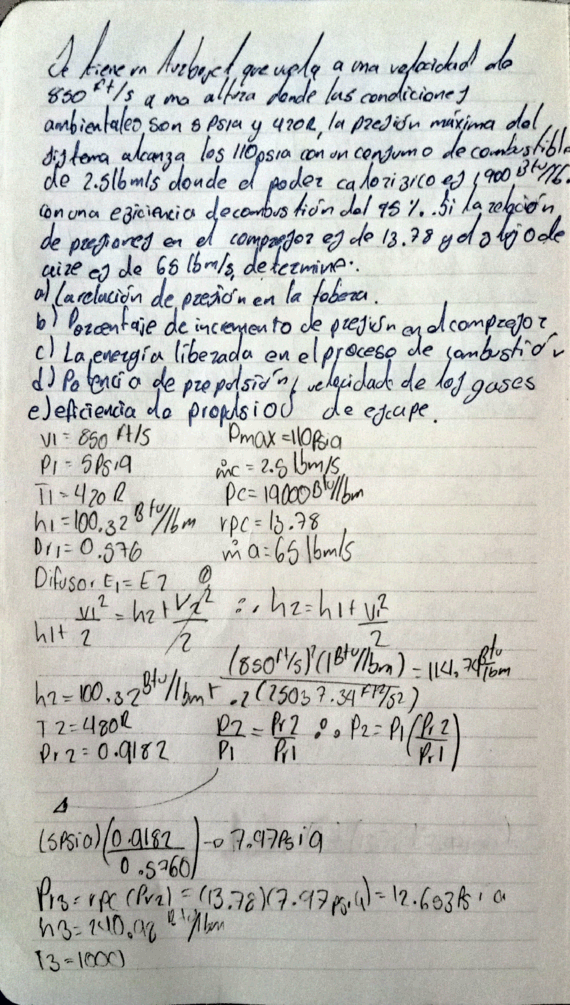 Se tiene un turbojet que vuela a una velocidad de
850 ft/s a una altura donde las condiciones
ambientales son 5 Psia y 420R, la presión máxima del
sistema alcanza los 110psia con un consumo de combustible
de 2.5lbm/s donde el poder calorifico es 1900 Btu/lb.
con una eficiencia de combustión del 95 %. Si la relación
de presiones en el compresor es de 13.78 y el flujo de
aire es de 65 lbm/s, determine:
a) La relación de presión en la tobera.
b) Porcentaje de incremento de presión en el compresor
c) La energía liberada en el proceso de combustión
d) Potencia de propulsión, velocidad de los gases
e) eficiencia de propulsion de escape.
V1 = 850 ft/s Pmax = 110Psia
P1 = 5Psia ṁc = 2.5 lbm/s
T1 = 420 R Pc = 19000 Btu/lbm
h1 = 100.32 Btu/lbm rpc = 13.78
Pr1 = 0.576 ṁa = 65 lbm/s
Difusor E1 = E2 0
h1 + V1²/2 = h2 + V2²/2 ∴ h2 = h1 + V1²/2
h2 = 100.32 Btu/lbm + (850 ft/s)²(1 Btu/lbm)/2(25037.34 ft²/s²) = 114.74 Btu/lbm
T2 = 480R P2/P1 = Pr2/Pr1 ∴ P2 = P1(Pr2/Pr1)
Pr2 = 0.9182
(5Psia)(0.9182/0.5760) → 7.97Psia
Pr3 = rpc (Pr2) = (13.78)(7.97psia) = 12.653Psia
h3 = 240.98 Btu/lbm
T3 = 1000